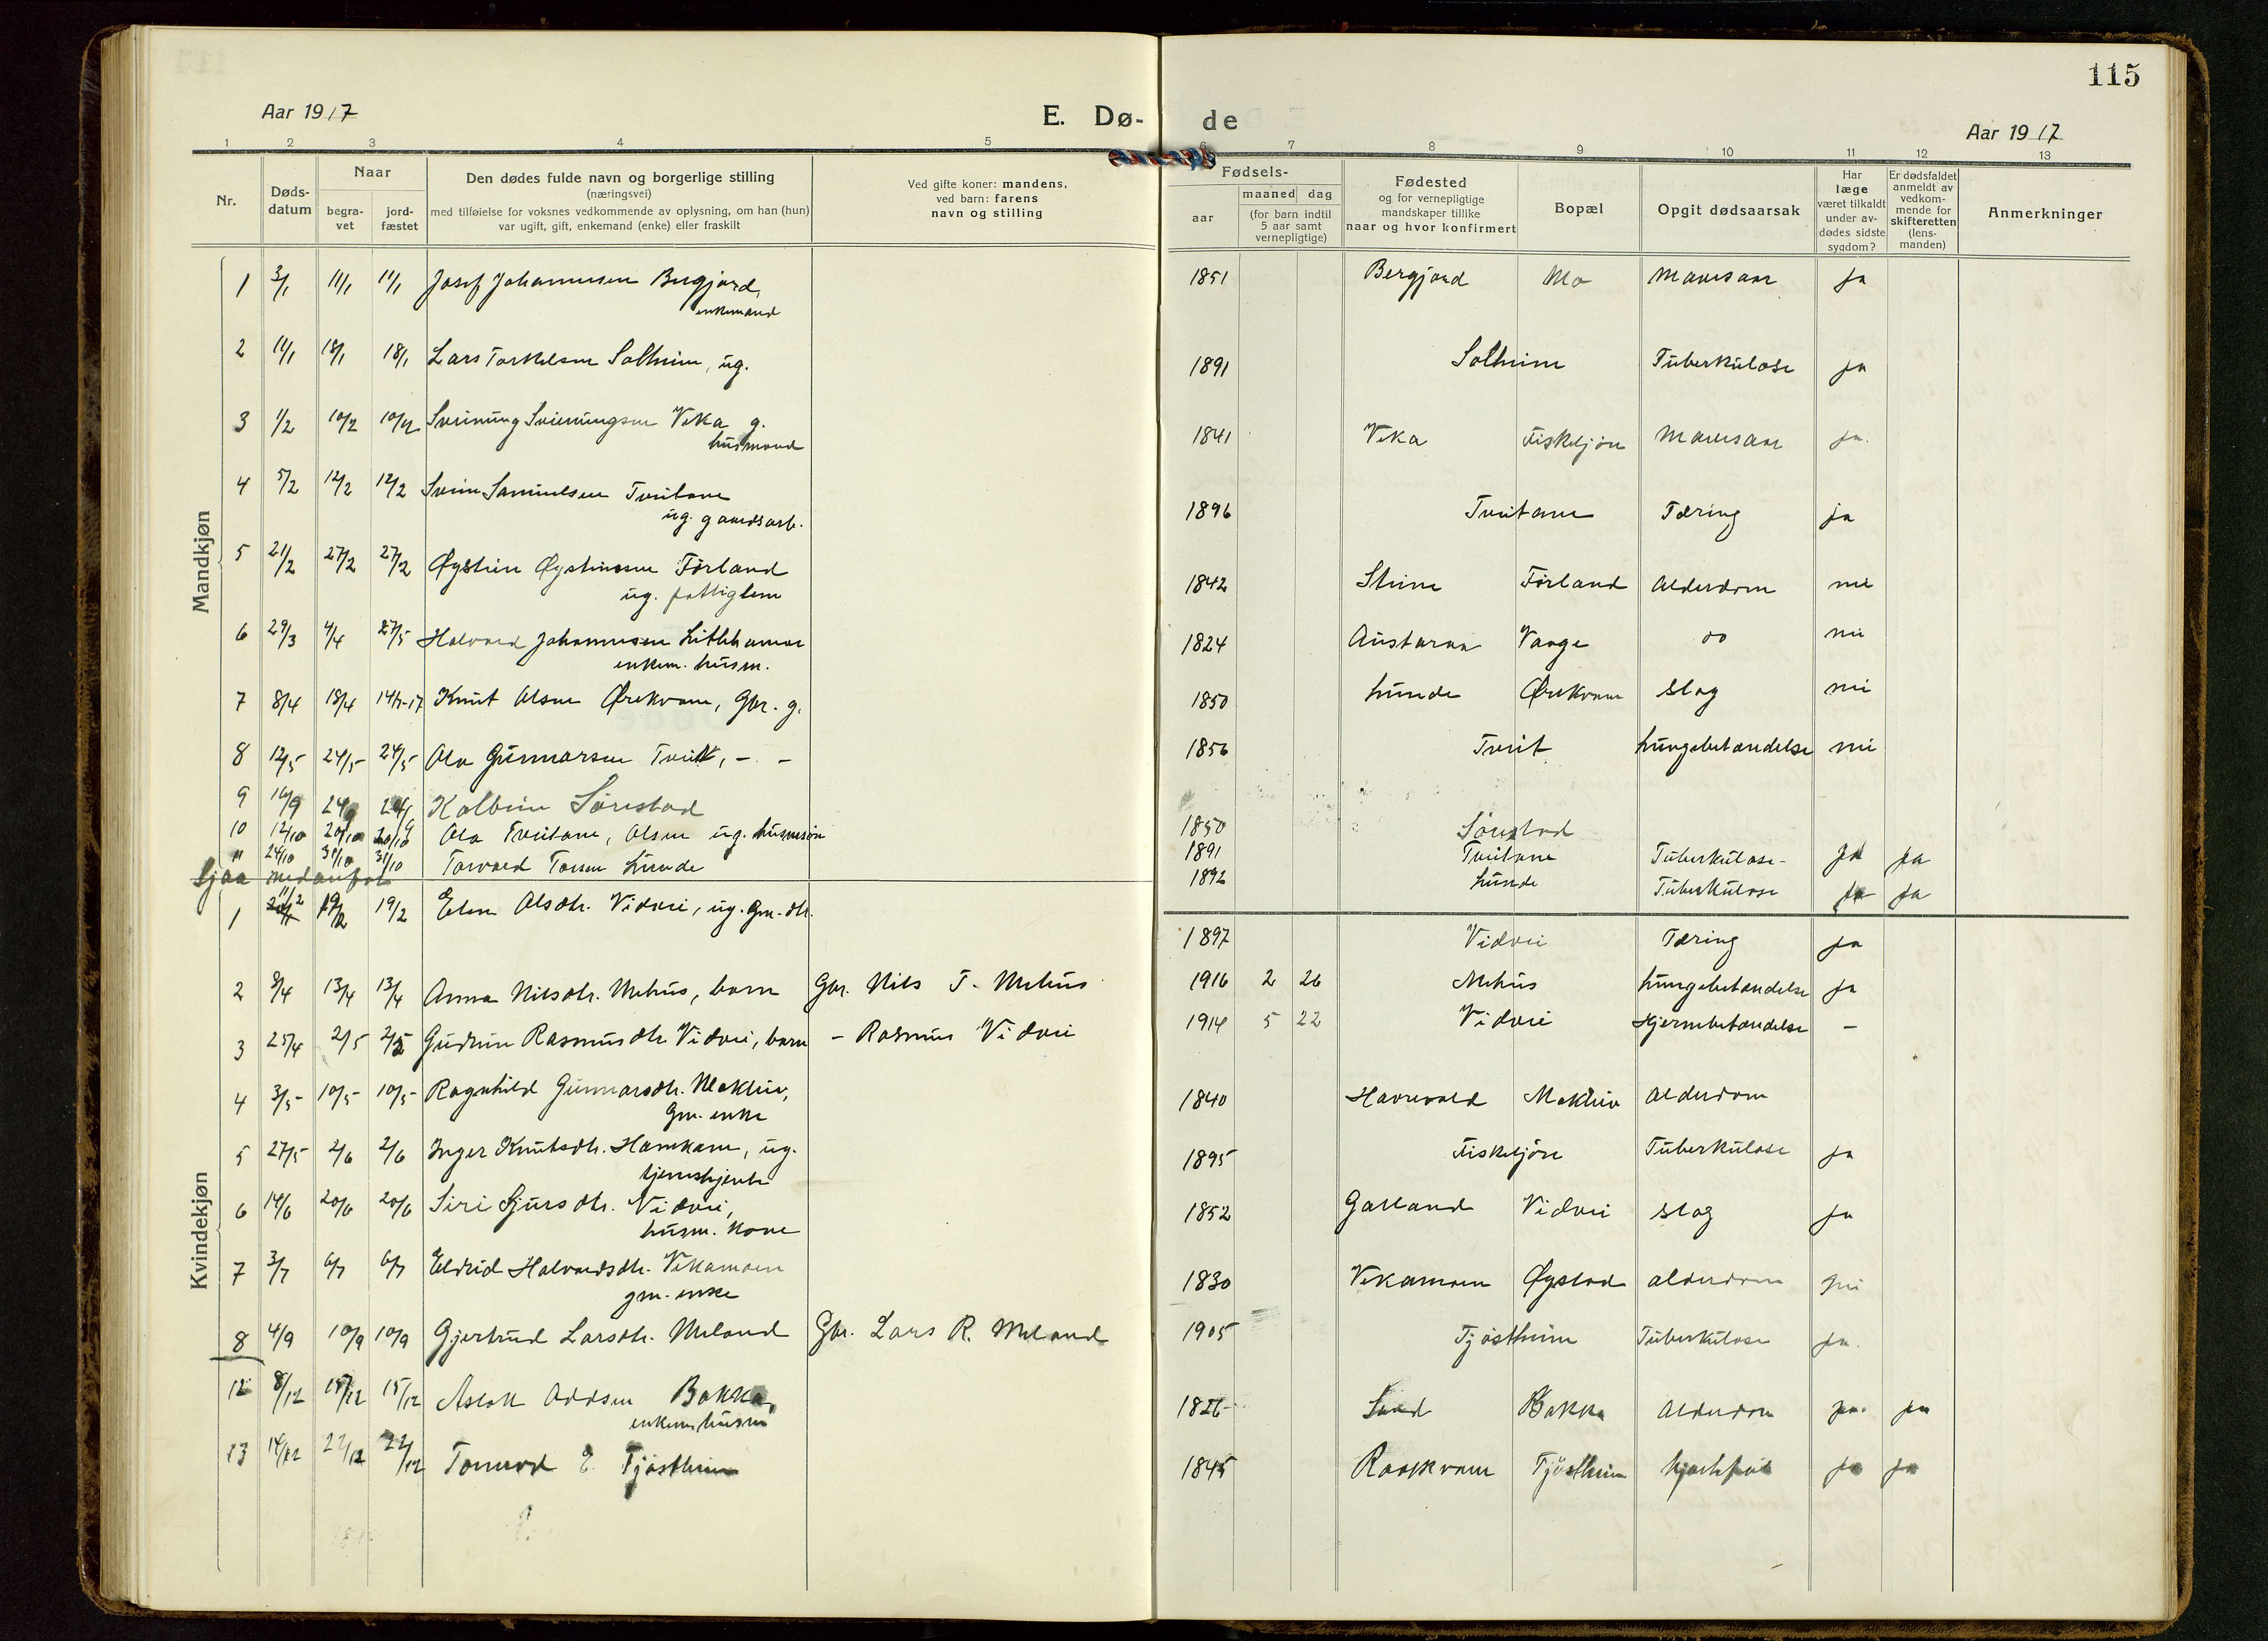 115
Aar 1917
E. Dø-
de
Aar 1917
1 2 3 4 5 6 7 8 9 10 11 12 13
Nr.
Døds-
datum
Naar
begra-
vet
jord-
fæstet
Den dødes fulde navn og borgerlige stilling
(næringsvei)
med tilføielse for voksnes vedkommende av oplysning, om han (hun)
var ugift, gift, enkemand (enke) eller fraskilt
Ved gifte koner: mandens,
ved barn: farens
navn og stilling
Fødsels-
aar
maaned dag
(for barn indtil
5 aar samt
vernepligtige)
Fødested
og for vernepligtige
mandskaper tillike
naar og hvor konfirmert
Bopæl
Opgit dødsaarsak
Har
læge
været tilkaldt
under av-
dødes sidste
sygdom?
Er dødsfaldet
anmeldt av
vedkom-
mende for
skifteretten
(lens-
manden)
Anmerkninger
Mandkjøn
1 3/1 11/1 11/1 Josef Johannessen Bergjord, 1851 Bergjord Mo Mavesaar ja
enkemand
2 11/1 18/1 18/1 Lars Torkelsen Solheim, ug. 1891 Solheim Tuberkulose ja
3 1/2 10/2 10/2 Sveinung Sveinungsen Veka g. 1841 Veka Fiskeljøn Mavesaar ja.
husmand
4 5/2 12/2 12/2 Svein Samuelsen Tveitane 1896 Tveitane Tæring ja
ug. gaardsarb.
5 21/2 27/2 27/2 Øystein Øysteinsen Førland 1842 Steine Førland Alderdom nei
ug. fattiglem
6 29/3 4/4 27/5 Halvard Johannesen Litlehamar 1824 Austaraa Vaage do nei
enkem. husm.
7 8/4 18/4 14/7-17 Knut Olsen Ørekvam, Gbr. g. 1850 Lunde Ørekvam Slag nei
8 12/5 24/5 24/5 Ola Gunnarsen Tveit, - - 1856 Tveit Lungebetændelse nei
9 16/9 24/9 24/9 Kolbein Sørestad 1850 Sørestad
10 12/10 20/10 20/10 Ola Tveitane, Olsen ug. husmsøn 1891 Tveitane Tuberkulose - ja ja
11 24/10 31/10 31/10 Torvald Torsen Lunde 1892 Lunde Tuberkulose ja ja
Sjaa nedanfor
Kvindekjøn
1 11/2 19/2 19/2 Elen Olsdtr. Vidvei, ug. Gm.-dtr. 1897 Vidvei Tæring ja
2 8/4 13/4 13/4 Anna Nilsdtr. Mehus, barn Gbr. Nils T. Mehus 1916 2 26 Mehus Lungebetændelse ja
3 25/4 2/5 2/5 Gudrun Rasmusdtr. Vidvei, barn - Rasmus Vidvei 1914 5 22 Vidvei Hjernebetændelse -
4 3/5 10/5 10/5 Ragnhild Gunnarsdtr. Mokleiv, 1840 Havrevold Mokleiv Alderdom
Gm. enke
5 27/5 2/6 2/6 Inger Knutsdtr. Hamkam, ug. 1895 Fiskeljøn Tuberkulose ja
tjenestjente
6 14/6 20/6 20/6 Siri Sjursdtr. Vidvei, 1852 Garland Vidvei Slag ja
husm. kone
7 3/7 6/7 6/7 Eldrid Halvardsdtr. Vekamoen 1830 Vekamoen Øystad alderdom nei
gm. enke
8 4/9 10/9 10/9 Gjertrud Larsdtr. Meland Gbr. Lars R. Meland 1905 Tjøstheim Tuberkulose ja.
12 8/12 15/12 15/12 Aslak Oddsen Bakka, 1826 Sand Bakka Alderdom ja. ja
enkem. husm
13 14/12 22/12 22/12 Tormod E. Tjøstheim 1845 Raaskvam Tjøstheim hjertefeil ja ja